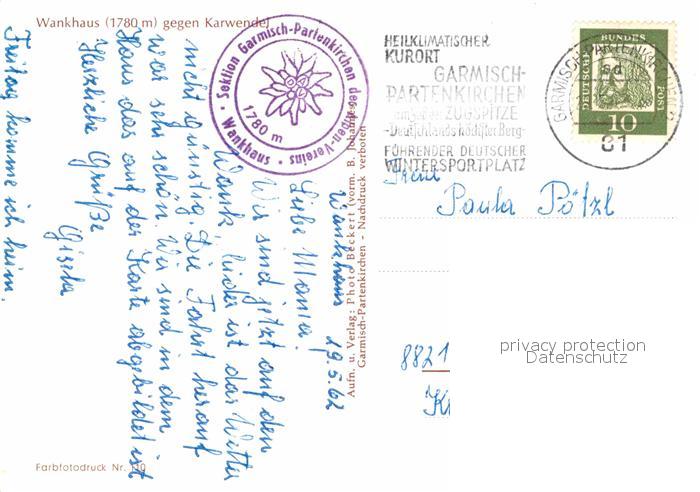 Wankhaus (1780 m) gegen Karwendel
Sektion Garmisch-Partenkirchen des Alpen-Vereins
1780 m
· Wankhaus ·
HEILKLIMATISCHER
KURORT
GARMISCH-
PARTENKIRCHEN
am Fuße der ZUGSPITZE
-Deutschlands höchster Berg-
FÜHRENDER DEUTSCHER
WINTERSPORTPLATZ
GARMISCH-PARTENKIRCHEN
81
DEUTSCHE BUNDESPOST
10
19.5.62
Liebe Mama!
Wir sind jetzt auf dem
Wank, leider ist das Wetter
nicht günstig. Die Fahrt herauf
war sehr schön. Wir sind in dem
Haus das auf der Karte abgebildet ist
Herzliche Grüße
Gisela
Freitag komme ich heim.
Aufn. u. Verlag: Photo Beckert (vorm. B. Johannes)
Garmisch-Partenkirchen - Nachdruck verboten
Frau
Paula Pötzl
8821
privacy protection
Datenschutz
Farbfotodruck Nr. 110